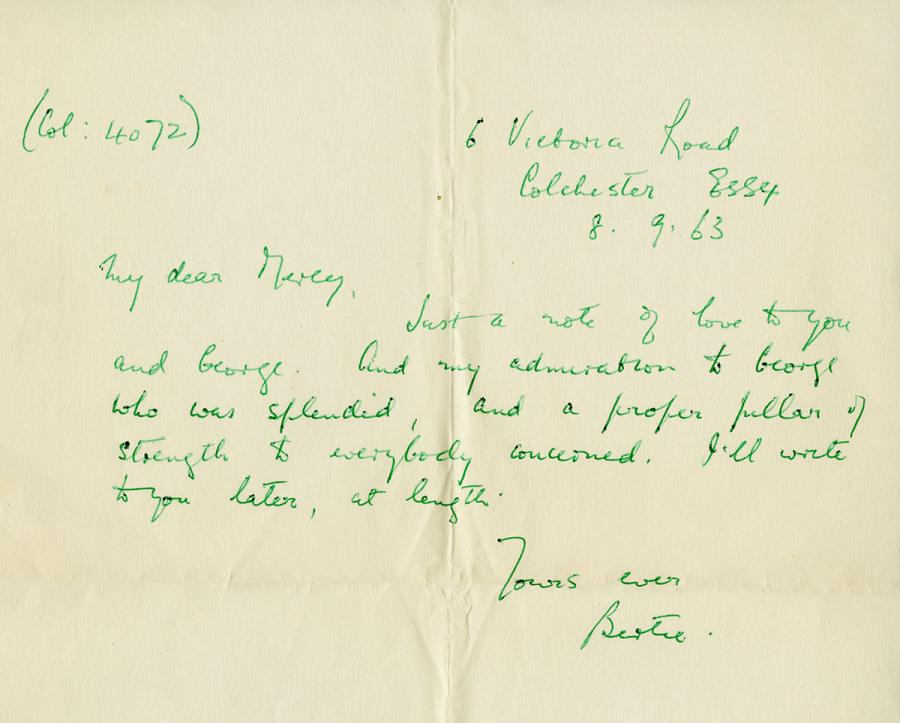 (Col: 4072)
6 Victoria Road
Colchester Essex
8. 9. 63
My dear Mercy,
Just a note of love to you
and George. And my admiration to George
who was splendid, and a proper pillar of
strength to everybody concerned. I'll write
to you later, at length.
Yours ever
Bertie.